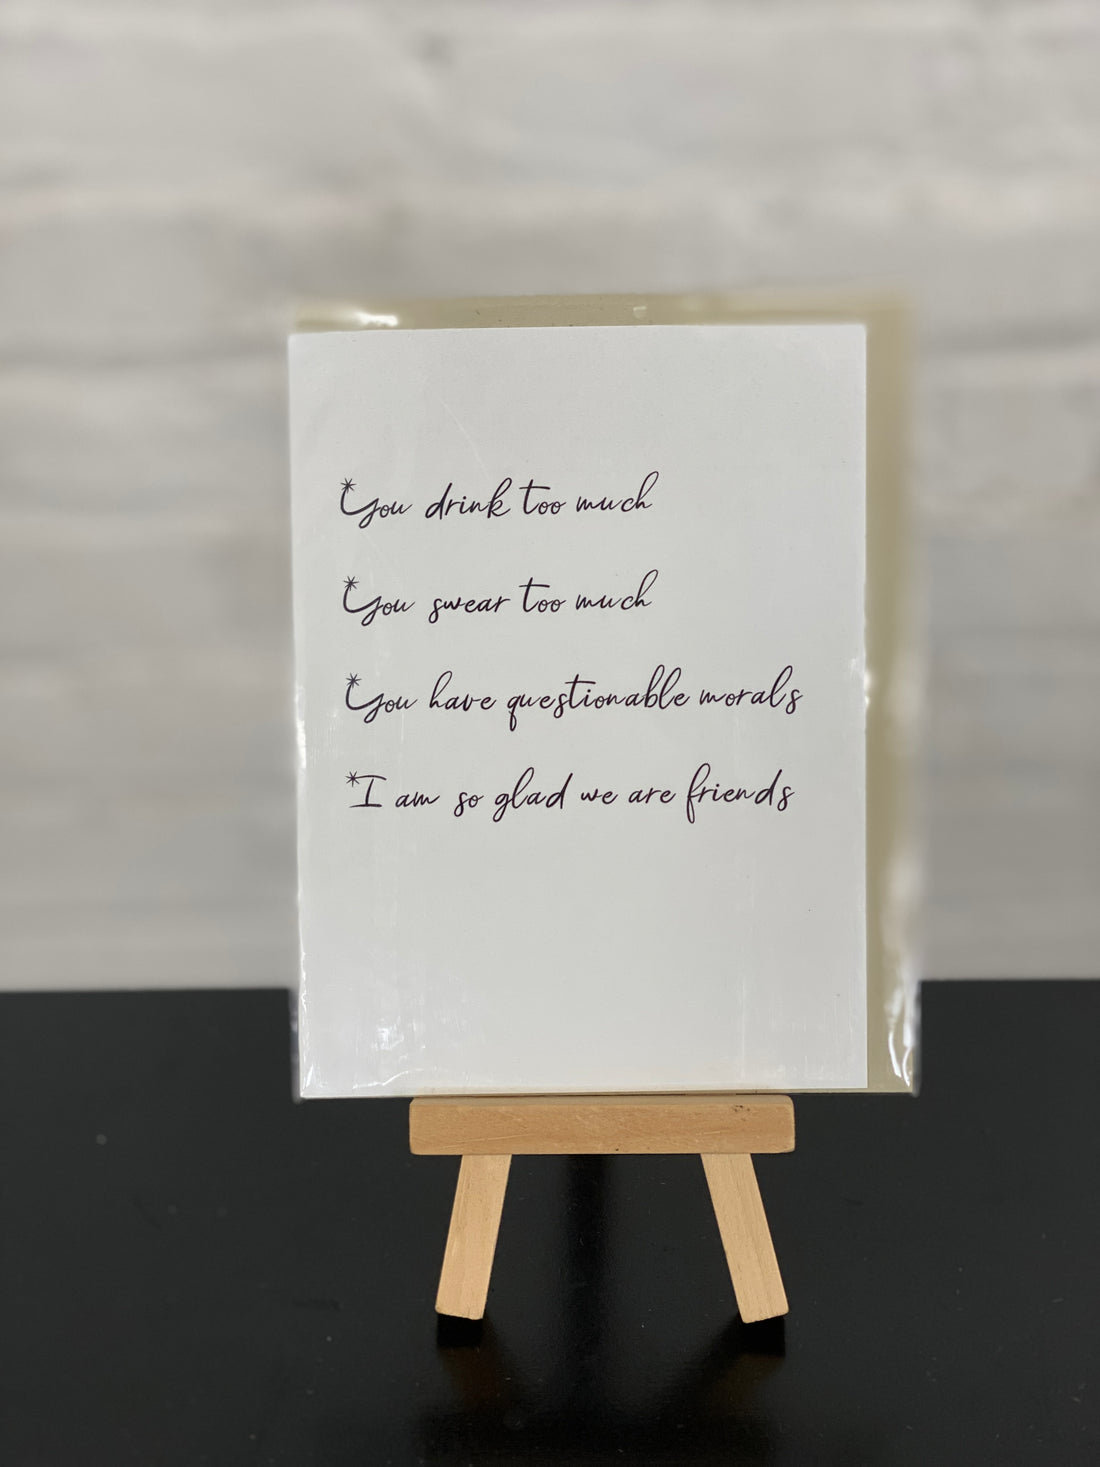 *You drink too much
*You swear too much
*You have questionable morals
*I am so glad we are friends